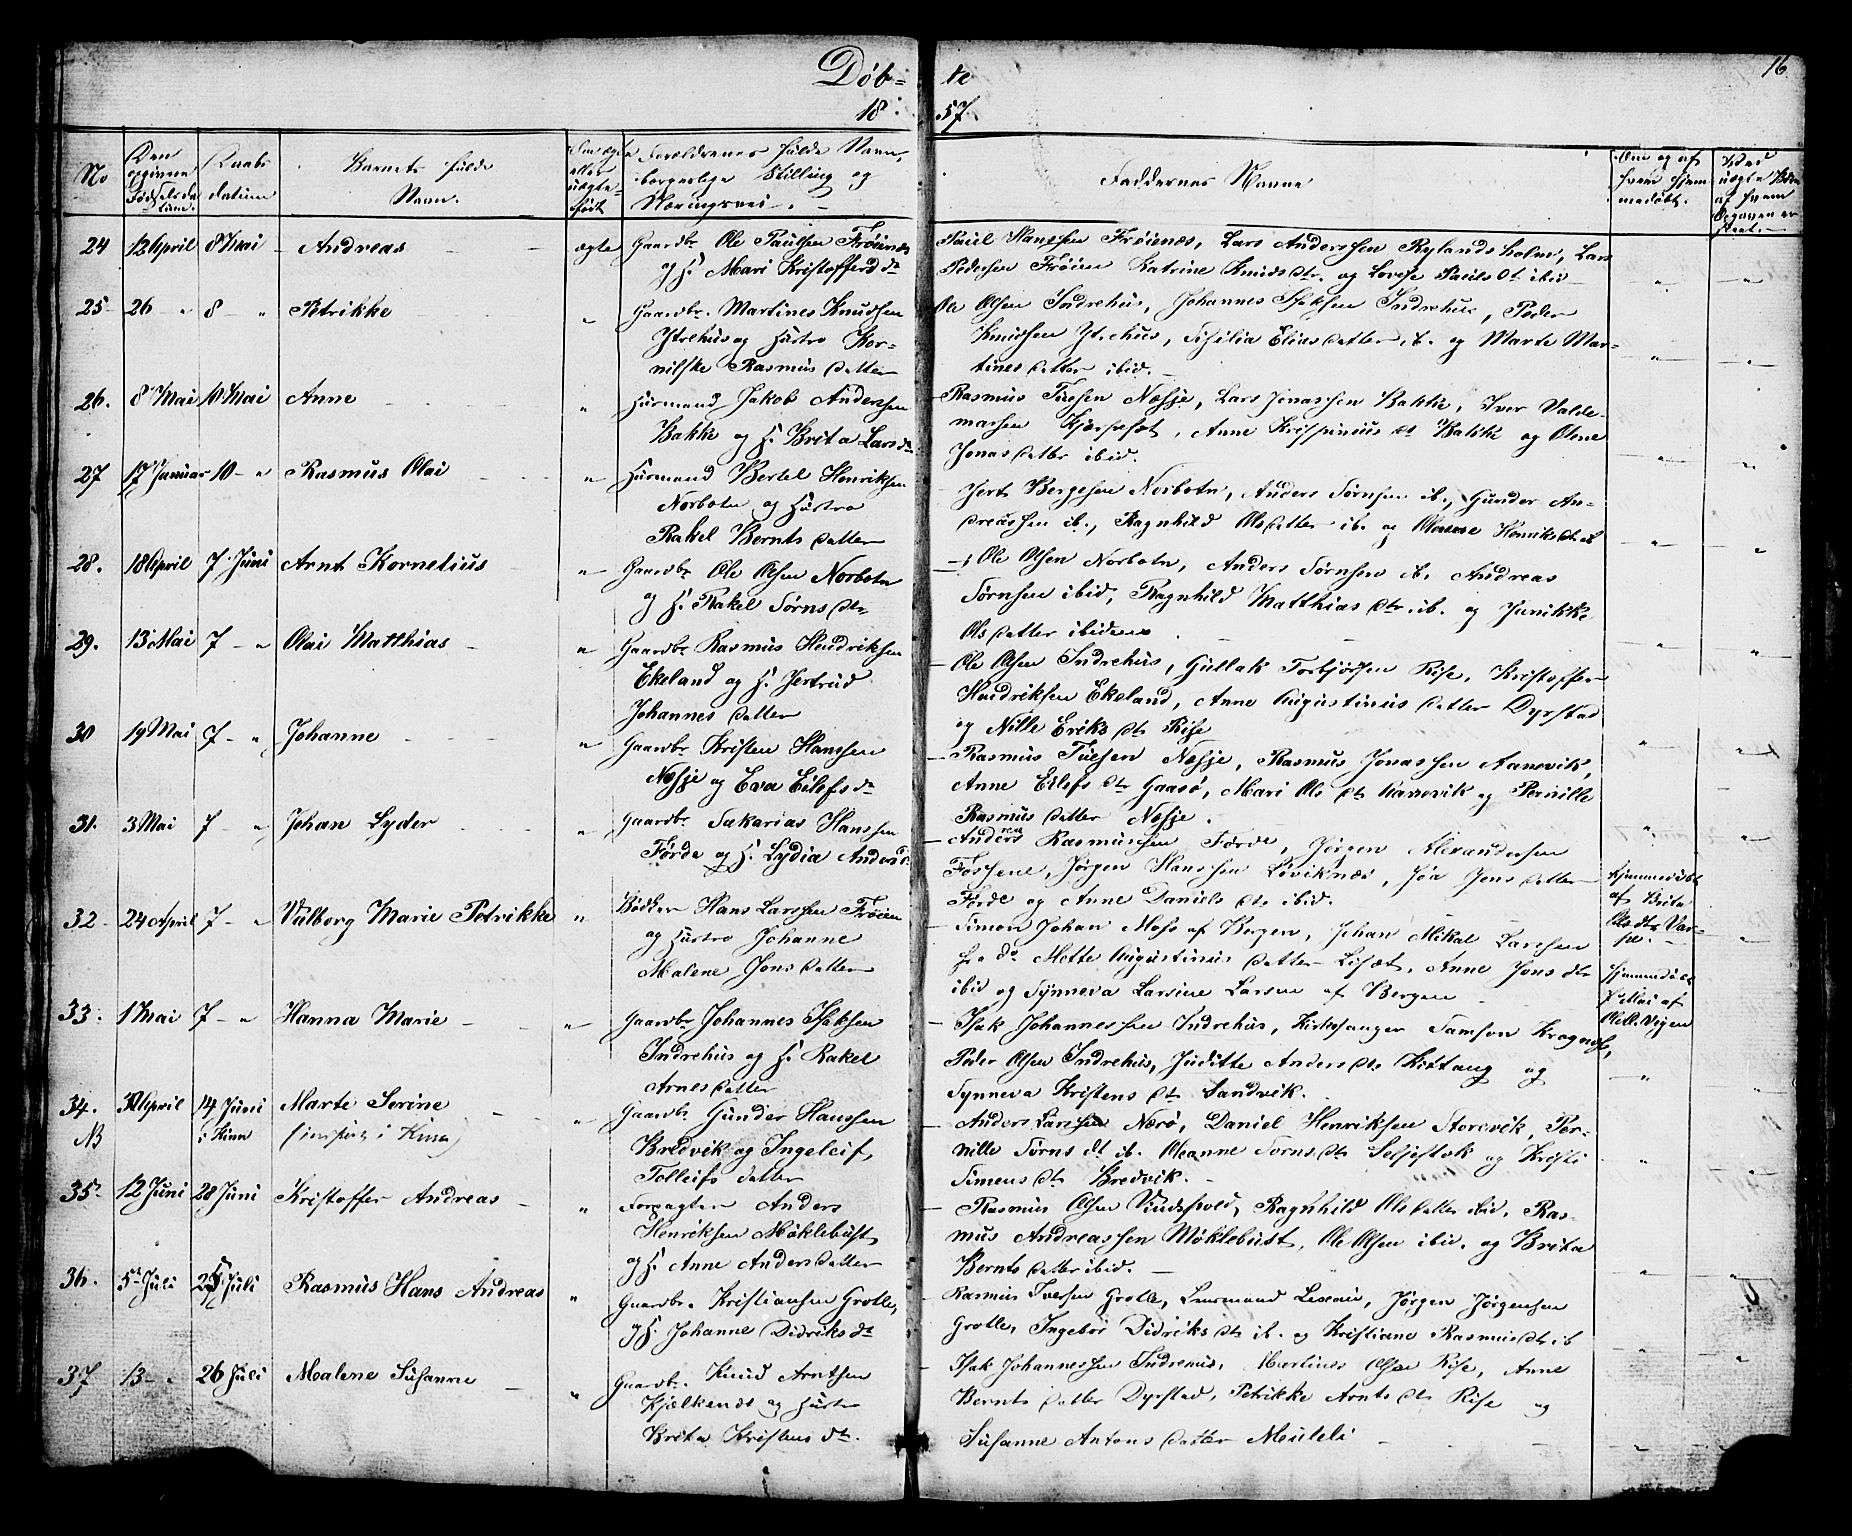 Døb= te 16
18 57.
No
Den egentl. Fødselsdatum.
Daabs datum
Barnets fulde Navn.
Om ægte eller uægte født
Forældrenes fulde Navn, borgerlige Stilling og Næringsvei.
Faddernes Navne
Om og af hvem hjemmedøbt.
24 12 April 8 Mai Andreas ægte Gaardbr. Ole Paulsen Frøienæs
og H. Mari Kristofferd dr
Paul Hansen Frøienæs, Lars Anderssen Rylandsholm, Lars
Pedersen Frøien Katrine Knuds dtr. og Lovise Pauls dt ibid
25 26 " 8 " Petrikke " Gaardbr. Martines Knudsen
Ytrehus og Hustro Kor-
nilske Rasmus datter
Ole Olsen Indrehus, Johannes Isaksen Indrehus, Peder
Knudsen Ytrehus, Sisilia Elias datter ib. og Marte Mar-
tines datter ibid.
26. 8 Mai 10 Mai Anne " Husmand Jakob Anderssen
Bakke og H. Brita Larsdr
Rasmus Tuesen Næsje, Lars Jonassen Bakke, Iver Valde-
marsen, Anne Krispinius dt Bakke og Olene
Jonas datter ibid.
27 17 Januar 10 - " Rasmus Olai " Husmand Bertel Henriksen
Norbotn og Hustro
Rakel Bernts datter
Bergesen Norbotn, Anders Sørnsen ib., Gunder An-
dreassen ib., Ragnhild Olsdatter ib. og
28. 18 April 7 Juni Arnt Kornelius " Gaardbr Ole Olsen Norbotn
og H. Rakel Sørns dtr
Ole Olsen Norbotn, Anders Sørnsen ib. Andreas
Sørnsen ibid, Ragnhild Matthias dtr. ib. og Jenikke
Ols datter ibidem
29. 13 Mai 7 - " Olai Matthias " Gaardbr Rasmus Hendriksen
Ekeland og H. Jertrud
Johannes datter
Ole Olsen Indrehus, Gullak Torbjørsen Rise, Kristoffer
Hendriksen Ekeland, Anne Augustinus datter Dyrstad
og Nille Eriks dtr Rise
30 19 Mai 7 - " Johanne " Gaardbr Kristen Hanssen
Næsje og Eva Eilefs dr
Rasmus Tuesen Næsje, Rasmus Jonassen Aanevik,
Anne Eilefs dtr Gaasø, Mari Ols dtr og Pernille
Rasmus datter Næsje.
31. 3 Mai 7 " Johan Lyder " Gaardbr Sakarias Hanssen
Førde og H. Lydia Andersd.
Andreas Rasmussen Førde, Jørgen Alexandersen
Jørgen Hanssen Løviknæs, Jens datter
Førde og Anne Daniels dtr ibid.
32 24 April 7 - " Valborg Marie Petrikke " Bødker Hans Larssen Frøien
og Hustro Johanne
Malene Jons datter
Simon Johan Moss af Bergen, Johan Mikal Larssen
fra do Mette Augustinus datter Liset, Anne Jons dtr
ibid og Synneva Larsine Larsen af Bergen
Hjemmedøbt
af Brita
33. 1 Mai 7 - " Hanna Marie " Gaardbr Johannes Isaksen
Indrehus og H. Rakel
Arnes datter
Isak Johannessen Indrehus, Kirkesanger Samson Kragnæs,
Peder Olsen Indrehus, Juditte Anders dtr og
Synneva Kristens dtr Sandvik.
Hjemmedøbt
34. 30 April 14 Juni Marte Serine " Gaardbr Gunder Hanssen
NB i Kinn
Bredvik og Ingeleif,
Tolleifs datter
Anders Larssen Nærø, Daniel Henriksen Storevik, Per-
nille Sørns dt ib. Oleanne Sørns dtr og Kristi
Simens dtr Bredvik.
35 12 Juni 28 Juni Kristoffer Andreas " Forpagter Anders
Henriksen Møklebust,
og H. Anne Anders datter
Rasmus Olsen Vindspold, Ragnhild Ols datter ibid, Ras-
mus Andreassen Møklebust, Ole Olsen ibid. og Brita
Bernts datter ibid.
36. 5 Juli 25 Juli Rasmus Hans Andreas " Gaardbr. Kristiansen Grotle,
og H. Johanne Didriks dr
Rasmus Iversen Grotle, Jørgen Jørgensen
Grotle, Ingebor Didriks dtr ib. og Kristiane Rasmus dtr ib
37 13 - " 26 Juli Malene Susanne " Gaardbr. Knud Arntsen
Kjelkenæs og Hustro
Brita Kristens dtr.
Isak Johannessen Indrehus, Martines Olsen Rise, Anne
Bernts datter Dyrstad, Petrikke Arnts dtr Rise og
Susanne Antons datter